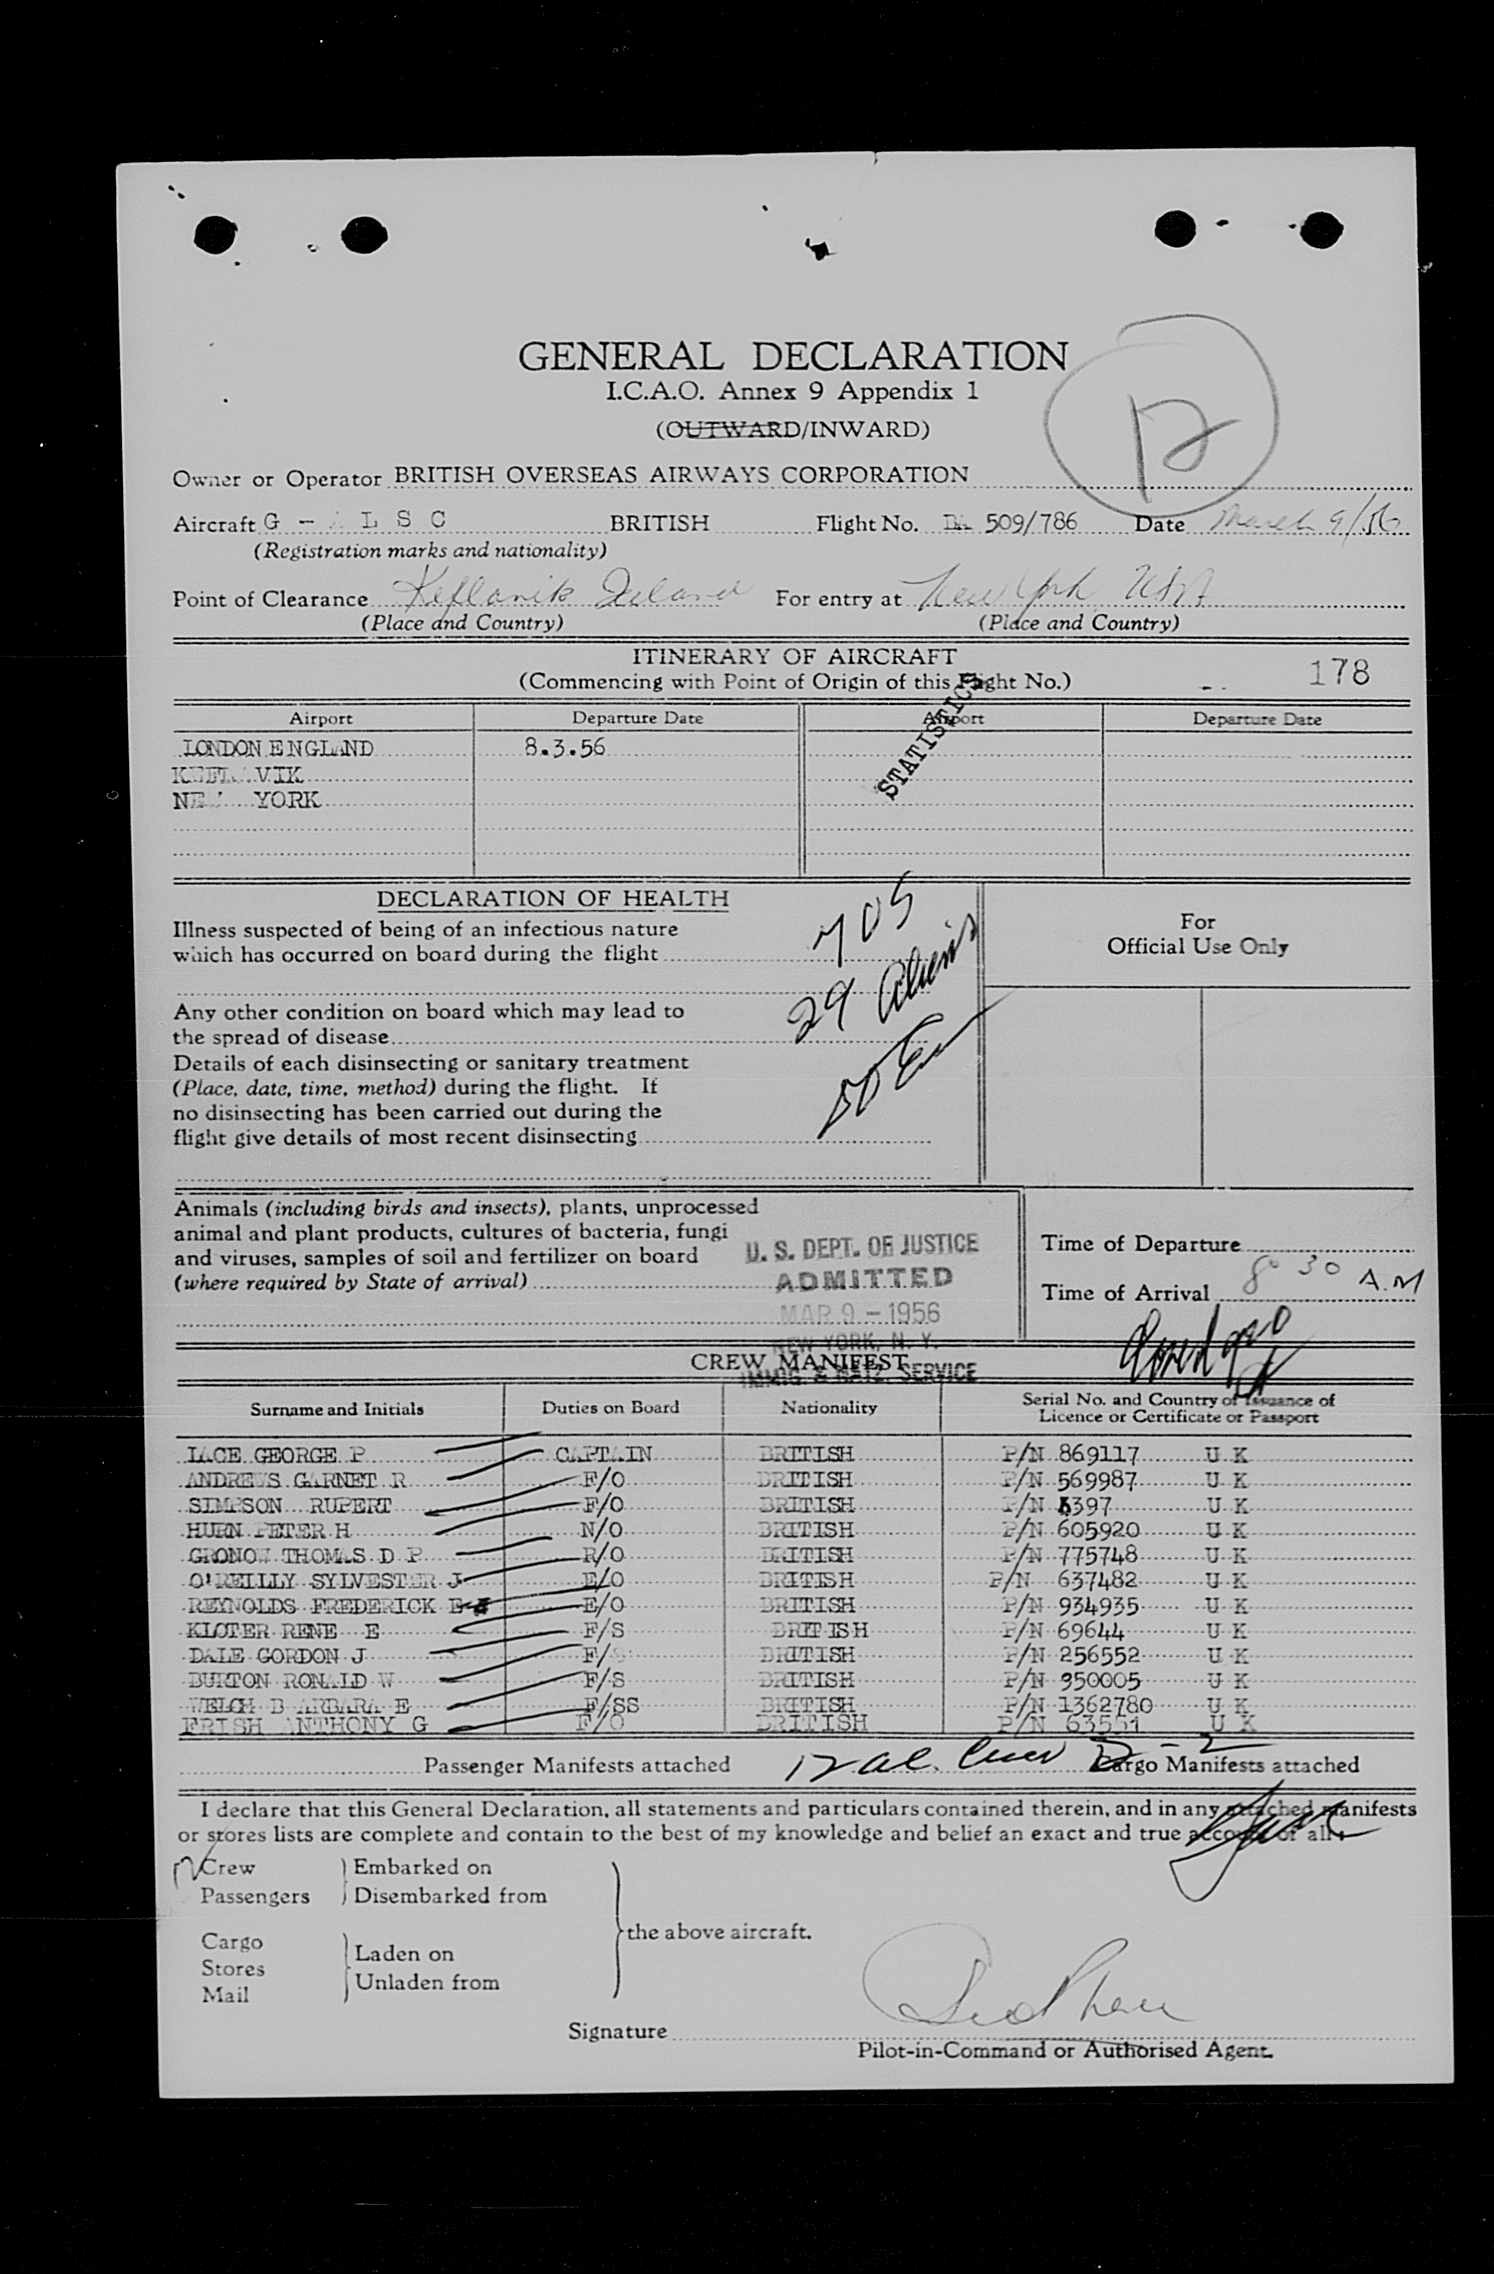 GENERAL DECLARATION
I.C.A.O. Annex 9 Appendix 1
(OUTWARD/INWARD)
12
Owner or Operator BRITISH OVERSEAS AIRWAYS CORPORATION
Aircraft G - A L S C BRITISH Flight No. BA 509/786 Date March 9/56
(Registration marks and nationality)
Point of Clearance Keflavik Iceland For entry at New York USA
(Place and Country) (Place and Country)
ITINERARY OF AIRCRAFT
(Commencing with Point of Origin of this Flight No.) 178
Airport Departure Date Airport Departure Date
STATISTICS
LONDON ENGLAND 8.3.56
KEFLAVIK
NEW YORK
DECLARATION OF HEALTH
Illness suspected of being of an infectious nature
which has occurred on board during the flight
For
Official Use Only
29 Aliens
Any other condition on board which may lead to
the spread of disease
Details of each disinsecting or sanitary treatment
(Place, date, time, method) during the flight. If
no disinsecting has been carried out during the
flight give details of most recent disinsecting
Animals (including birds and insects), plants, unprocessed
animal and plant products, cultures of bacteria, fungi
and viruses, samples of soil and fertilizer on board
(where required by State of arrival)
U. S. DEPT. OF JUSTICE
ADMITTED
MAR 9 - 1956
NEW YORK, N. Y.
IMMIG. & NATZ. SERVICE
Time of Departure
Time of Arrival 8 30 A.M
CREW MANIFEST
Surname and Initials Duties on Board Nationality Serial No. and Country of Issuance of
Licence or Certificate or Passport
LACE GEORGE P CAPTAIN BRITISH P/N 869117 U K
ANDREWS GARNET R F/O BRITISH P/N 569987 U K
SIMPSON RUPERT F/O BRITISH P/N 5397 U K
HURN PETER H N/O BRITISH P/N 605920 U K
GRONOW THOMAS D P R/O BRITISH P/N 775748 U K
O'REILLY SYLVESTER J E/O BRITISH P/N 637482 U K
REYNOLDS FREDERICK E E/O BRITISH P/N 934935 U K
KLOTER RENE E F/S BRITISH P/N 69644 U K
DALE GORDON J F/S BRITISH P/N 256552 U K
BURTON RONALD W F/S BRITISH P/N 350005 U K
WELCH BARBARA E F/SS BRITISH P/N 1362780 U K
FRISH ANTHONY G F/O BRITISH P/N 63551 U K
Passenger Manifests attached 12 al. Crew D-2 Cargo Manifests attached
I declare that this General Declaration, all statements and particulars contained therein, and in any attached manifests
or stores lists are complete and contain to the best of my knowledge and belief an exact and true account of all:
Crew Embarked on
Passengers Disembarked from
the above aircraft.
Cargo
Stores Laden on
Mail Unladen from
Signature
Pilot-in-Command or Authorised Agent.